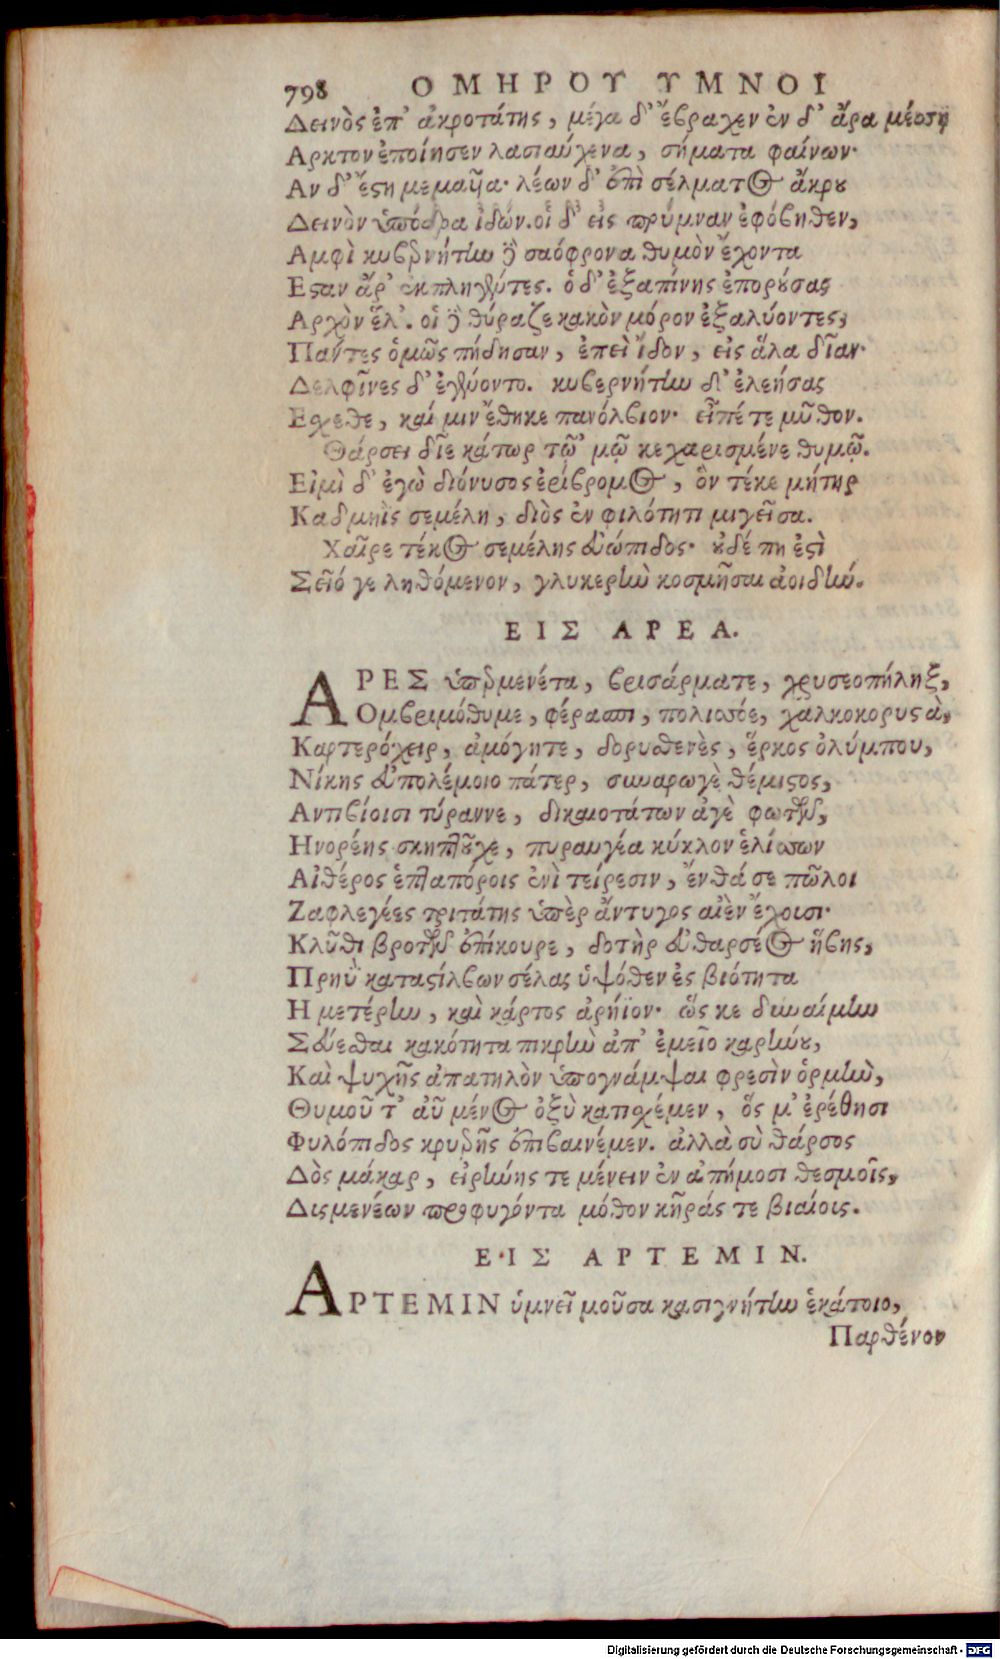 798 ΟΜΗΡΟΥ ΥΜΝΟΙ
Δεινὸς ἐπ' ἀκροτάτης, μέγα δ' ἔβραχεν ἐν δ' ἄρα μέσσῃ
Αρκτον ἐποίησεν λασιαύχενα, σήματα φαίνων·
Αν δ' ἔστη μεμαῦα· λέων δ' ἐπὶ σέλματος ἄκρου
Δεινὸν ὑπόδρα ἰδών. οἱ δ' εἰς πρύμναν ἐφόβηθεν,
Αμφὶ κυβερνήτην δὲ σαόφρονα θυμὸν ἔχοντα
Εσταν ἄρ' ἐκπληγέντες. ὁ δ' ἐξαπίνης ἐπορούσας
Αρχὸν ἕλ'. οἱ δὲ θύραζε κακὸν μόρον ἐξαλύοντες,
Πάντες ὁμῶς πήδησαν, ἐπεὶ ἴδον, εἰς ἅλα δῖαν·
Δελφῖνες δ' ἐγένοντο. κυβερνήτην δ' ἐλεήσας
Εσχεθε, καί μιν ἔθηκε πανόλβιον· εἶπέ τε μῦθον.
Θάρσει δῖε κάτωρ τῷ' μῷ κεχαρισμένε θυμῷ.
Εἰμὶ δ' ἐγὼ διόνυσος ἐρίβρομος, ὃν τέκε μήτηρ
Καδμηῒς σεμέλη, διὸς ἐν φιλότητι μιγεῖσα.
Χαῖρε τέκος σεμέλης εὐώπιδος· οὐδέ πη ἐστὶ
Σεῖό γε ληθόμενον, γλυκερὴν κοσμῆσαι ἀοιδήν.
ΕΙΣ ΑΡΕΑ.
ΑΡΕΣ ὑπερμενέτα, βρισάρματε, χρυσεοπήληξ,
Ομβριμόθυμε, φέρασπι, πολισσόε, χαλκοκορυστὰ,
Καρτερόχειρ, ἀμόγητε, δορυσθενὲς, ἕρκος ὀλύμπου,
Νίκης εὐπολέμοιο πάτερ, συναρωγὲ θέμιστος,
Αντιβίοισι τύραννε, δικαιοτάτων ἀγὲ φωτῶν,
Ηνορέης σκηπτοῦχε, πυραυγέα κύκλον ἑλίσσων
Αἰθέρος ἑπταπόροις ἐνὶ τείρεσιν, ἔνθά σε πῶλοι
Ζαφλεγέες τριτάτης ὑπὲρ ἄντυγος αἰὲν ἔχουσι·
Κλῦθι βροτῶν ἐπίκουρε, δοτὴρ εὐθαρσέος ἥβης,
Πρηῢ καταστίλβων σέλας ὑψόθεν ἐς βιότητα
Ημετέρην, καὶ κάρτος ἀρήϊον· ὥς κε δυναίμην
Σεύεσθαι κακότητα πικρὴν ἀπ' ἐμεῖο καρήνου,
Καὶ ψυχῆς ἀπατηλὸν ὑπογνάμψαι φρεσὶν ὁρμὴν,
Θυμοῦ τ' αὖ μένος ὀξὺ κατισχέμεν, ὅς μ' ἐρέθησι
Φυλόπιδος κρυερῆς ἐπιβαινέμεν. ἀλλὰ σὺ θάρσος
Δὸς μάκαρ, εἰρήνης τε μένειν ἐν ἀπήμοσι θεσμοῖς,
Δισμενέων προφυγόντα μόθον κῆράς τε βιαίοις.
ΕΙΣ ΑΡΤΕΜΙΝ.
ΑΡΤΕΜΙΝ ὑμνεῖ μοῦσα κασιγνήτην ἑκάτοιο,
Παρθένον
Digitalisierung gefördert durch die Deutsche Forschungsgemeinschaft - DFG